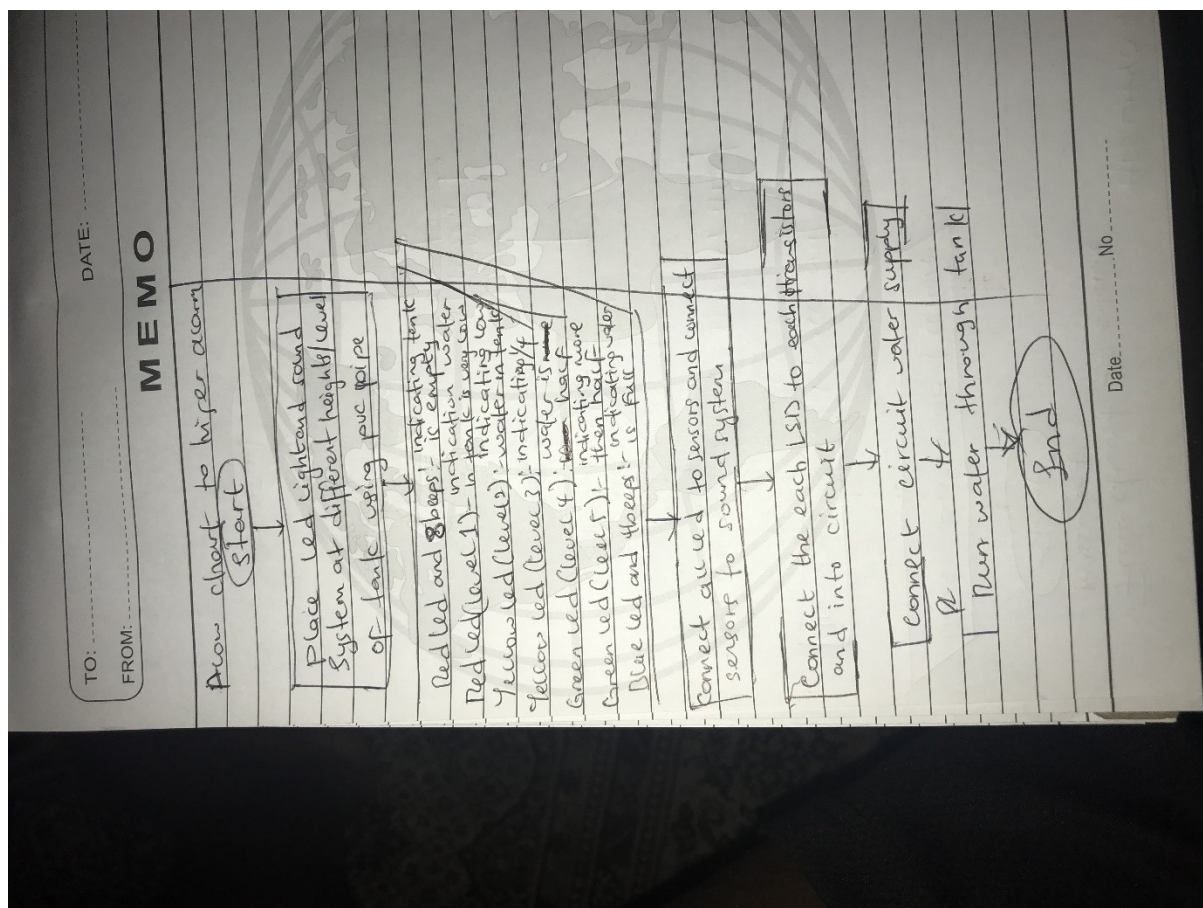 TO:
DATE:
FROM:
MEMO
flow chart to hiper alarm
Start
Place led light and sound
System at different heights/level
of tank using pvc pipe
Red led and 8 beeps:- indicating tank
is empty
Red led (level 1):- indication water
in tank is very low
Yellow led (level 2):- indicating low
water in tank
Yellow led (level 3):- indicating 1/4
Green led (level 4):- water is
half
Green led (level 5):- indicating more
then half
Blue led and 4 beeps:- indicating water
is full
Connect led to sensors and connect
sensors to sound system
Connect the each LSD to each transistors
and into circuit
Connect circuit water supply
Run water through tank
End
Date No